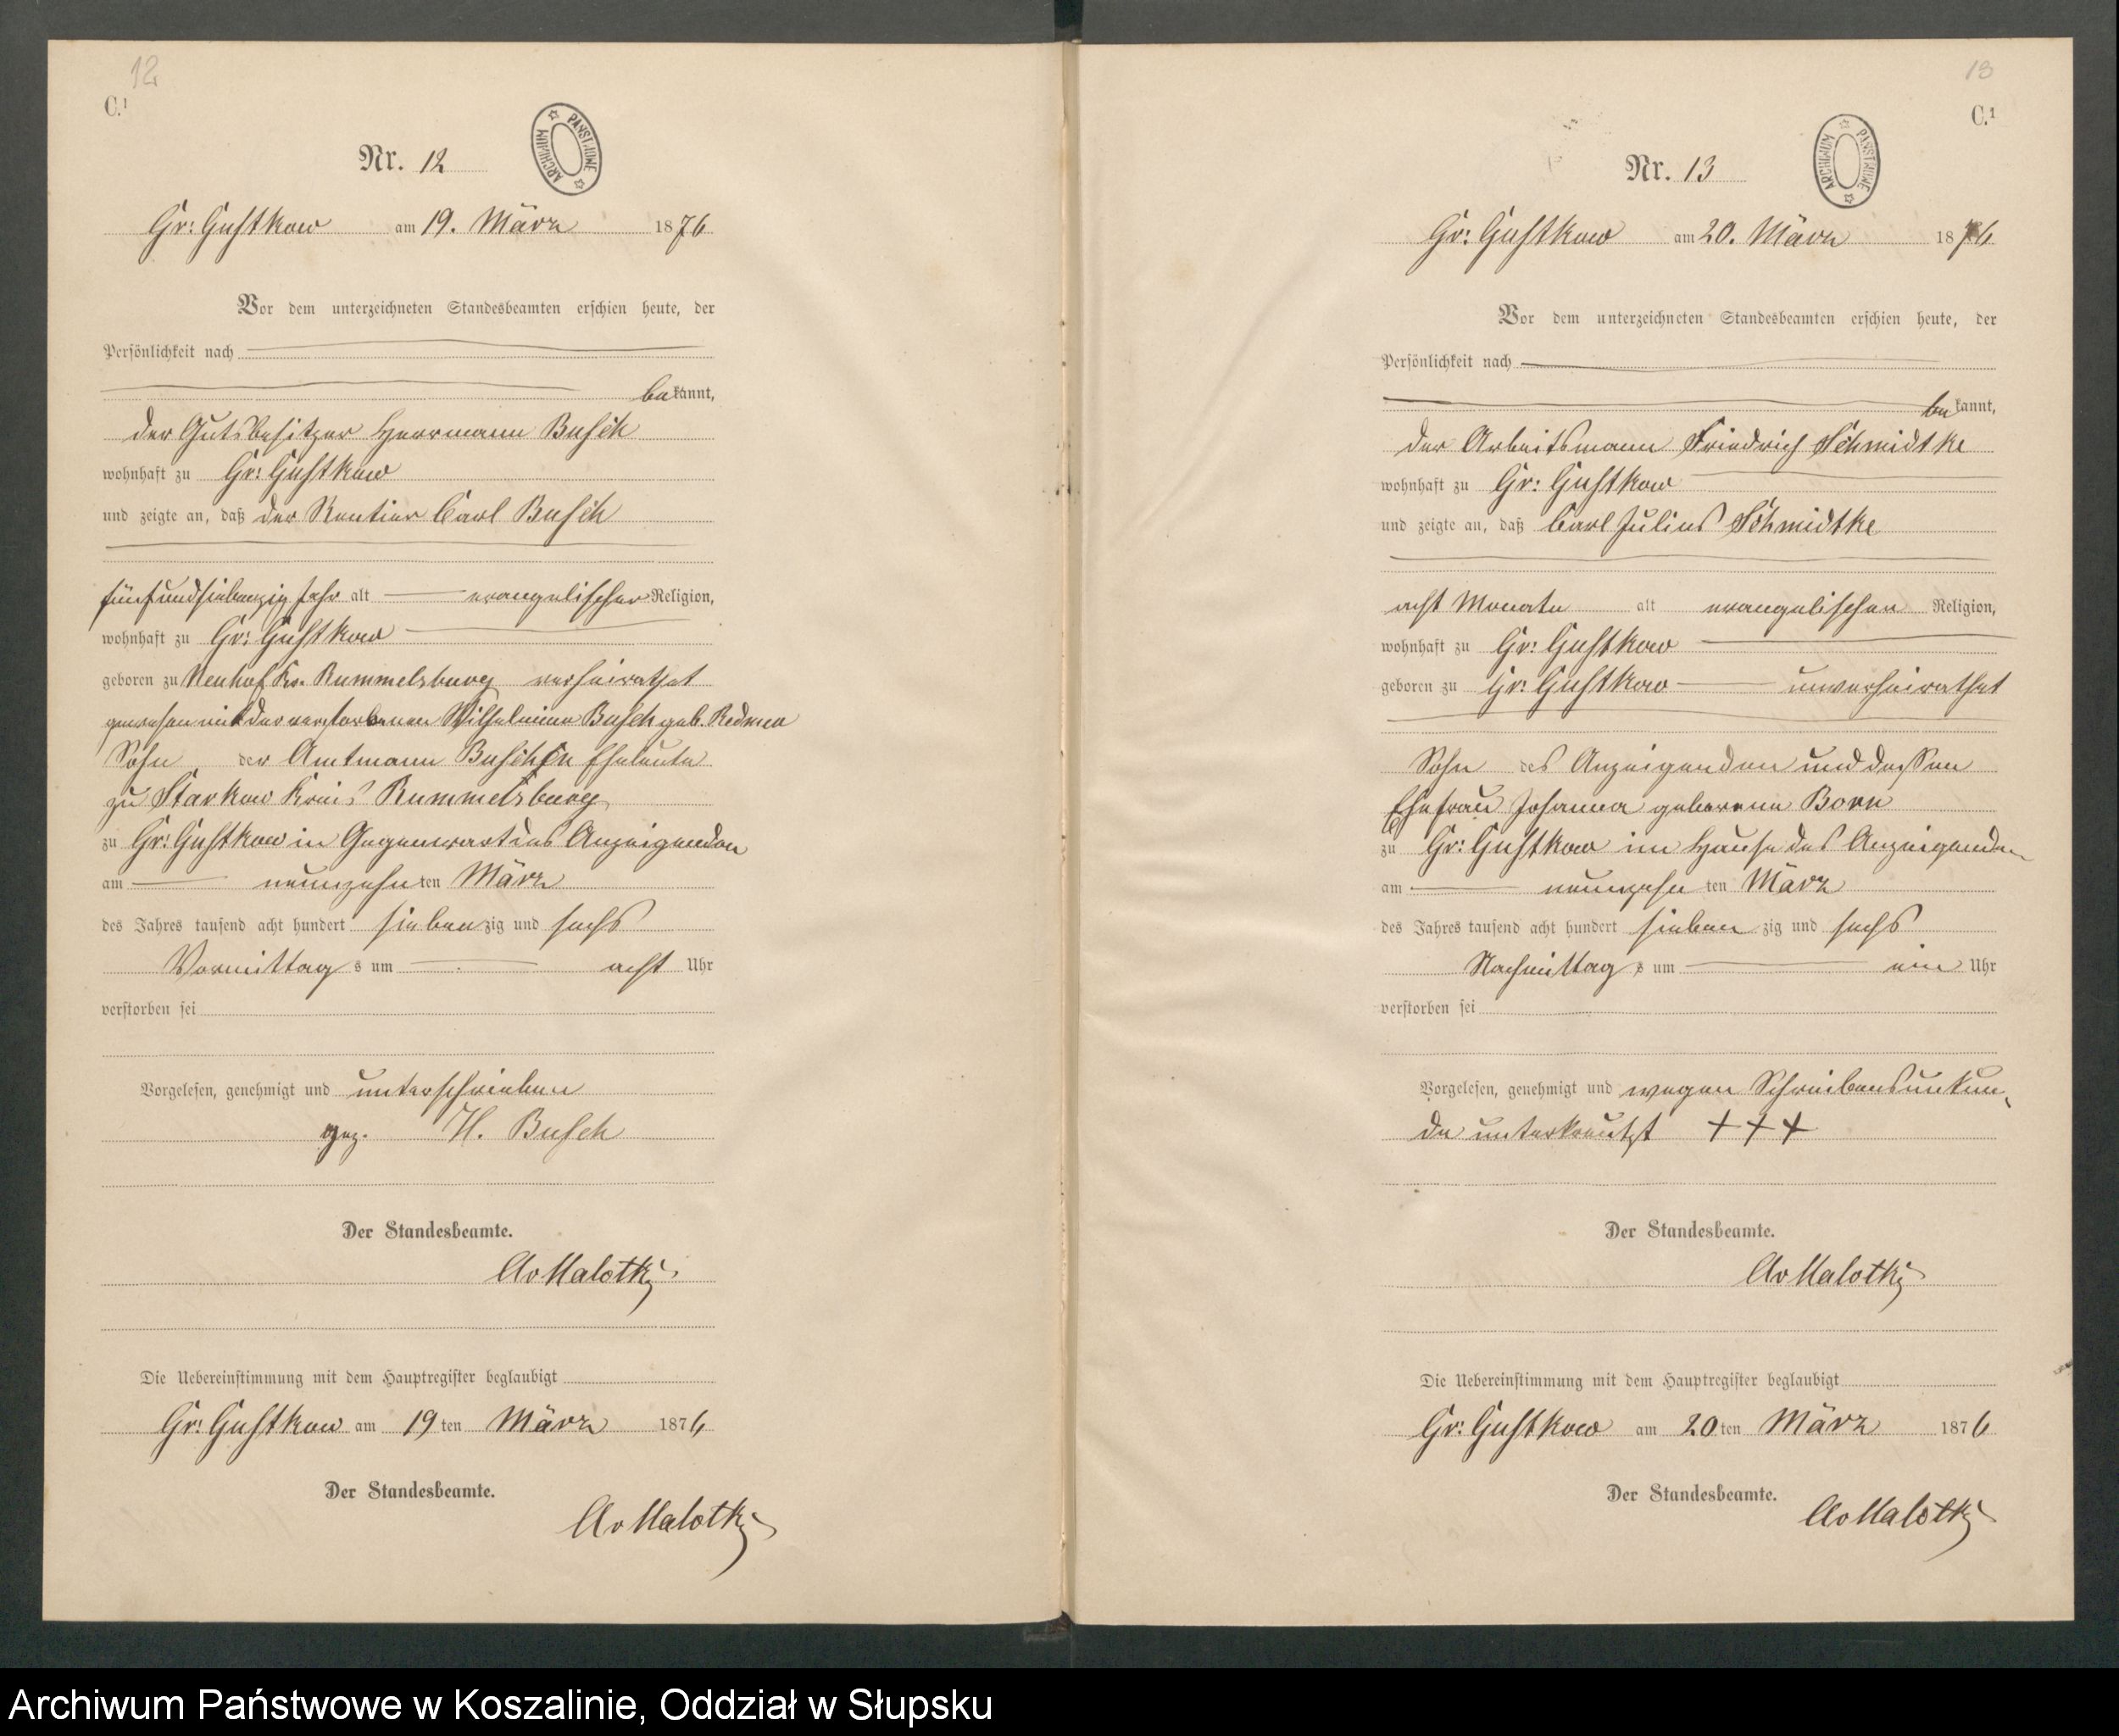 12
C.¹
Nr. 12
ARCHIWUM PAŃSTWOWE
Gr: Gustkow am 19. März 1876
Vor dem unterzeichneten Standesbeamten erschien heute, der
Persönlichkeit nach
bekannt,
der Gutsbesitzer Herrmann Busch
wohnhaft zu Gr: Gustkow
und zeigte an, daß der Rentier Carl Busch
fünfundsiebenzig Jahr alt evangelischer Religion,
wohnhaft zu Gr: Gustkow
geboren zu Neuhof Kr. Rummelsburg verheirathet
gewesen mit der verstorbenen Wilhelmine Busch geb.
Sohn der Amtmann Buschen Eheleute
zu Starkow Kreis Rummelsburg
zu Gr: Gustkow in Gegenwart des Anzeigenden
am neunzehnten März
des Jahres tausend acht hundert siebenzig und sechs
Vormittags um acht Uhr
verstorben sei
Vorgelesen, genehmigt und unterschrieben
gez. H. Busch
Der Standesbeamte.
AvMalotky
Die Uebereinstimmung mit dem Hauptregister beglaubigt
Gr: Gustkow am 19ten März 1876
Der Standesbeamte.
AvMalotky
13
C.¹
Nr. 13
ARCHIWUM PAŃSTWOWE
Gr: Gustkow am 20. März 1876
Vor dem unterzeichneten Standesbeamten erschien heute, der
Persönlichkeit nach
bekannt,
der Arbeitsmann Friedrich Schmidtke
wohnhaft zu Gr: Gustkow
und zeigte an, daß Carl Julius Schmidtke
acht Monate alt evangelischer Religion,
wohnhaft zu Gr: Gustkow
geboren zu Gr: Gustkow unverheirathet
Sohn des Anzeigenden und dessen
Ehefrau Johanna geborene Born
zu Gr: Gustkow im Hause des Anzeigenden
am neunzehnten März
des Jahres tausend acht hundert siebenzig und sechs
Nachmittags um ein Uhr
verstorben sei
Vorgelesen, genehmigt und wegen Schreibensunkun-
de unterkreutzt +++
Der Standesbeamte.
AvMalotky
Die Uebereinstimmung mit dem Hauptregister beglaubigt
Gr: Gustkow am 20ten März 1876
Der Standesbeamte.
AvMalotky
Archiwum Państwowe w Koszalinie, Oddział w Słupsku